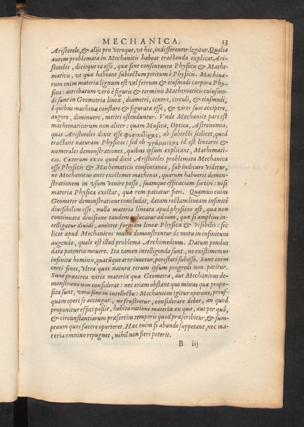 MECHANICA. 13
Aristoteles, & alijs pro verisque, vt hic, indifferenter legitur. Qualia
autem problemata in Mechanicis habeat tractanda explicat Ari-
stoteles, dicitque ea esse, quæ sint constantanea Physicis & Mathe-
maticis, vt quæ habeant subiectum petitum à Physicis. Machina-
rum enim materia lignum est vel ferrum & eiusmodi corpora Phy-
sica: attributum verò & figuris & terminis Mathematicis cuiusmo-
di sunt in Geometria lineæ, diametri, centra, circuli, & eiusmodi,
è quibus machinæ constare & figuratæ esse, & vires suas accipere,
augere, diminuere, metiri ostenduntur. Vnde Mechanice pars est
mathematicarum non alter: quam Musica, Optica, Astronomia,
quas Aristoteles dixit esse ob subiecti scilicet, quod
tractant naturam Physicas: sed ob id est lineares &
numerales demonstrationes, quibus eorum explicant, Mathemati-
cas. Cæterum ex eo quod dicit Aristoteles problemata Mechanica
esse Physicis & Mathematicis constantanea, sub indicare videtur,
ne Mechanicus ante existimet machinas, quarum habueris demon-
strationem in vsum venire posse, suamque efficaciam sortiri: nisi
materia Physica existat, quæ rem patiatur fieri. Quamuis enim
Geometræ demonstratione concludat, datam rectam lineam infinitè
diuisibilem esse, nulla materia lineata apud physicos est, quæ non
continuata diuisione tandem reducatur ad eam, quæ si amplius in-
telligatur diuidi, amittat formam lineæ Physicæ & visibilis: sci-
licet apud Mechanicos multa demonstrantur de motu in infinitum
augendo, quale est illud problema Archimedeum. Datum pondus
data potentia mouere. Ita tamen intelligenda sunt, ne existimemus
infinita homini, quacunque arte inuetur, posse fati subesse. Sunt enim
certi fines, vltra quos natura eorum ipsum progredi non patitur.
Nunc præterea vitia materiæ quæ Geometra, aut Mechanicus de-
monstrans non considerat: nec etiam obstant quo minus quæ propo-
sita sunt, vera sint in intellectu: Mechanicum igitur operante, prius-
quam operi se accingat, ne frustretur, considerare debet, an quod
proponitur effici possit, habita ratione materiæ ex qua, aut per quā,
& circunstantiarum præsertim temporis quod præscribitur, & sum-
ptuum quos facere oporteret. Hæc enim si abunde suppetant, nec ma-
teria omnino repugnet, nihil non fieri poterit.
B iij